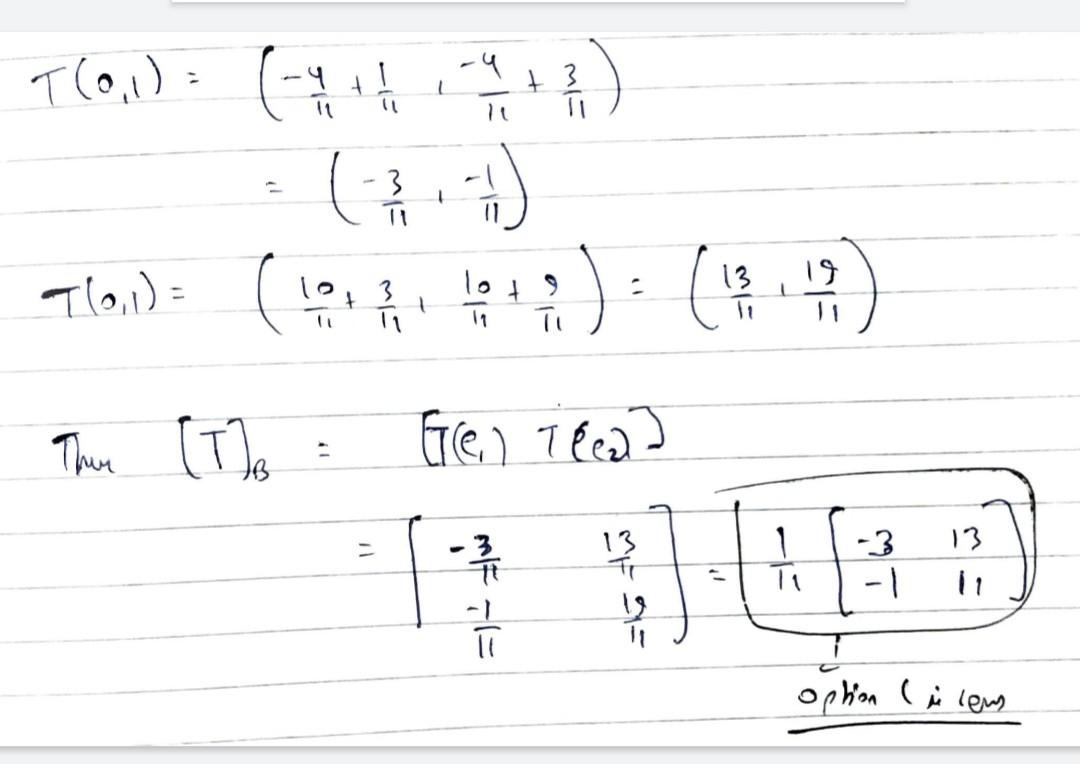 T(0,1) = (-4/11 + 1/11 , -4/11 + 3/11)
= (-3/11 , -1/11)
T(0,1) = (10/11 + 3/11 , 10/11 + 9/11) = (13/11 , 19/11)
Thus [T]B = [T(e1) T(e2)]
= [-3/11 13/11 -1/11 19/11] = [1/11 [-3 13 -1 11]
option ( is